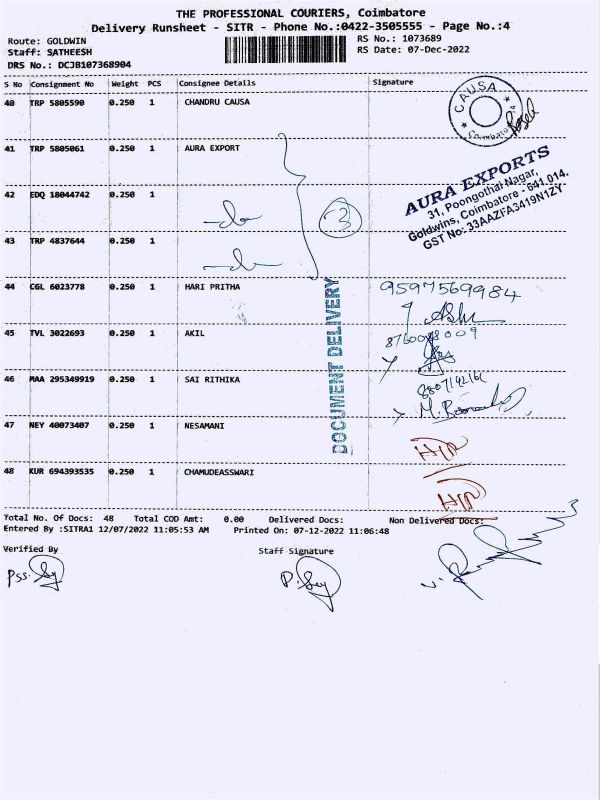 THE PROFESSIONAL COURIERS, Coimbatore
Delivery Runsheet - SITR - Phone No.:0422-3505555 - Page No.:4
Route: GOLDWIN RS No.: 1073689
Staff: SATHEESH RS Date: 07-Dec-2022
DRS No.: DCJB107368904
S No Consignment No Weight PCS Consignee Details Signature
40 TRP 5805590 0.250 1 CHANDRU CAUSA
CAUSA
Coimbatore
41 TRP 5805061 0.250 1 AURA EXPORT
AURA EXPORTS
31, Poongothai Nagar,
Goldwins, Coimbatore - 641 014.
GST No: 33AAZFA3419N1ZY
42 EDQ 18044742 0.250 1
-do-
3
43 TRP 4837644 0.250 1
-do-
44 CGL 6023778 0.250 1 HARI PRITHA
9597569984
DOCUMENT DELIVERY
45 TVL 3022693 0.250 1 AKIL
46 MAA 295349919 0.250 1 SAI RITHIKA
47 NEY 40073407 0.250 1 NESAMANI
48 KUR 694393535 0.250 1 CHAMUDEASSWARI
Total No. Of Docs: 48 Total COD Amt: 0.00 Delivered Docs: Non Delivered Docs:
Entered By :SITRA1 12/07/2022 11:05:53 AM Printed On: 07-12-2022 11:06:48
Verified By Staff Signature